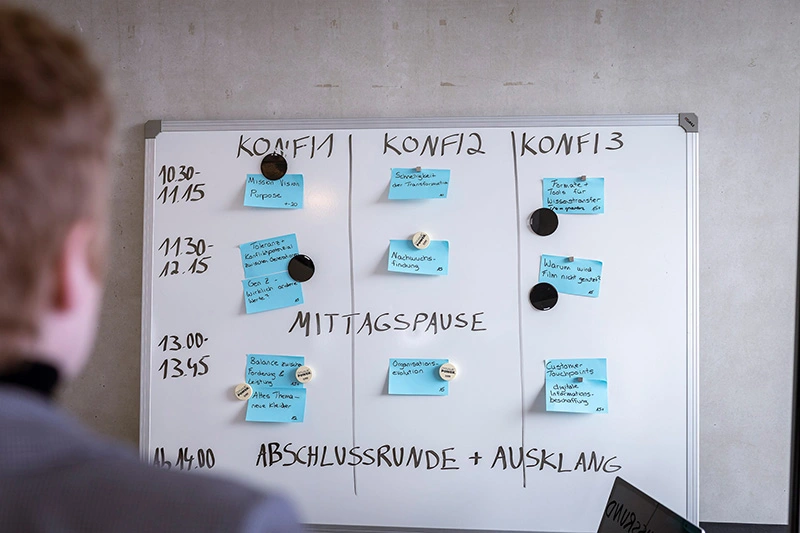 KONFI1 KONFI2 KONFI3
10.30-
11.15
Mission Vision
Purpose
Schnelligkeit
der Transformation
Formate +
Tools für
Wissenstransfer
11.30-
12.15
Toleranz +
Konfliktpotential
zwischen Generationen
Gen Z -
wirklich andere
Werte?
Nachwuchs-
findung
Warum wird
Film nicht genutzt?
MITTAGSPAUSE
13.00-
13.45
Balance zwischen
Förderung &
Leistung
Altes Thema -
neue Kleider
Organisations-
evolution
Customer
Touchpoints
digitale
Informations-
beschaffung
Ab 14.00
ABSCHLUSSRUNDE + AUSKLANG